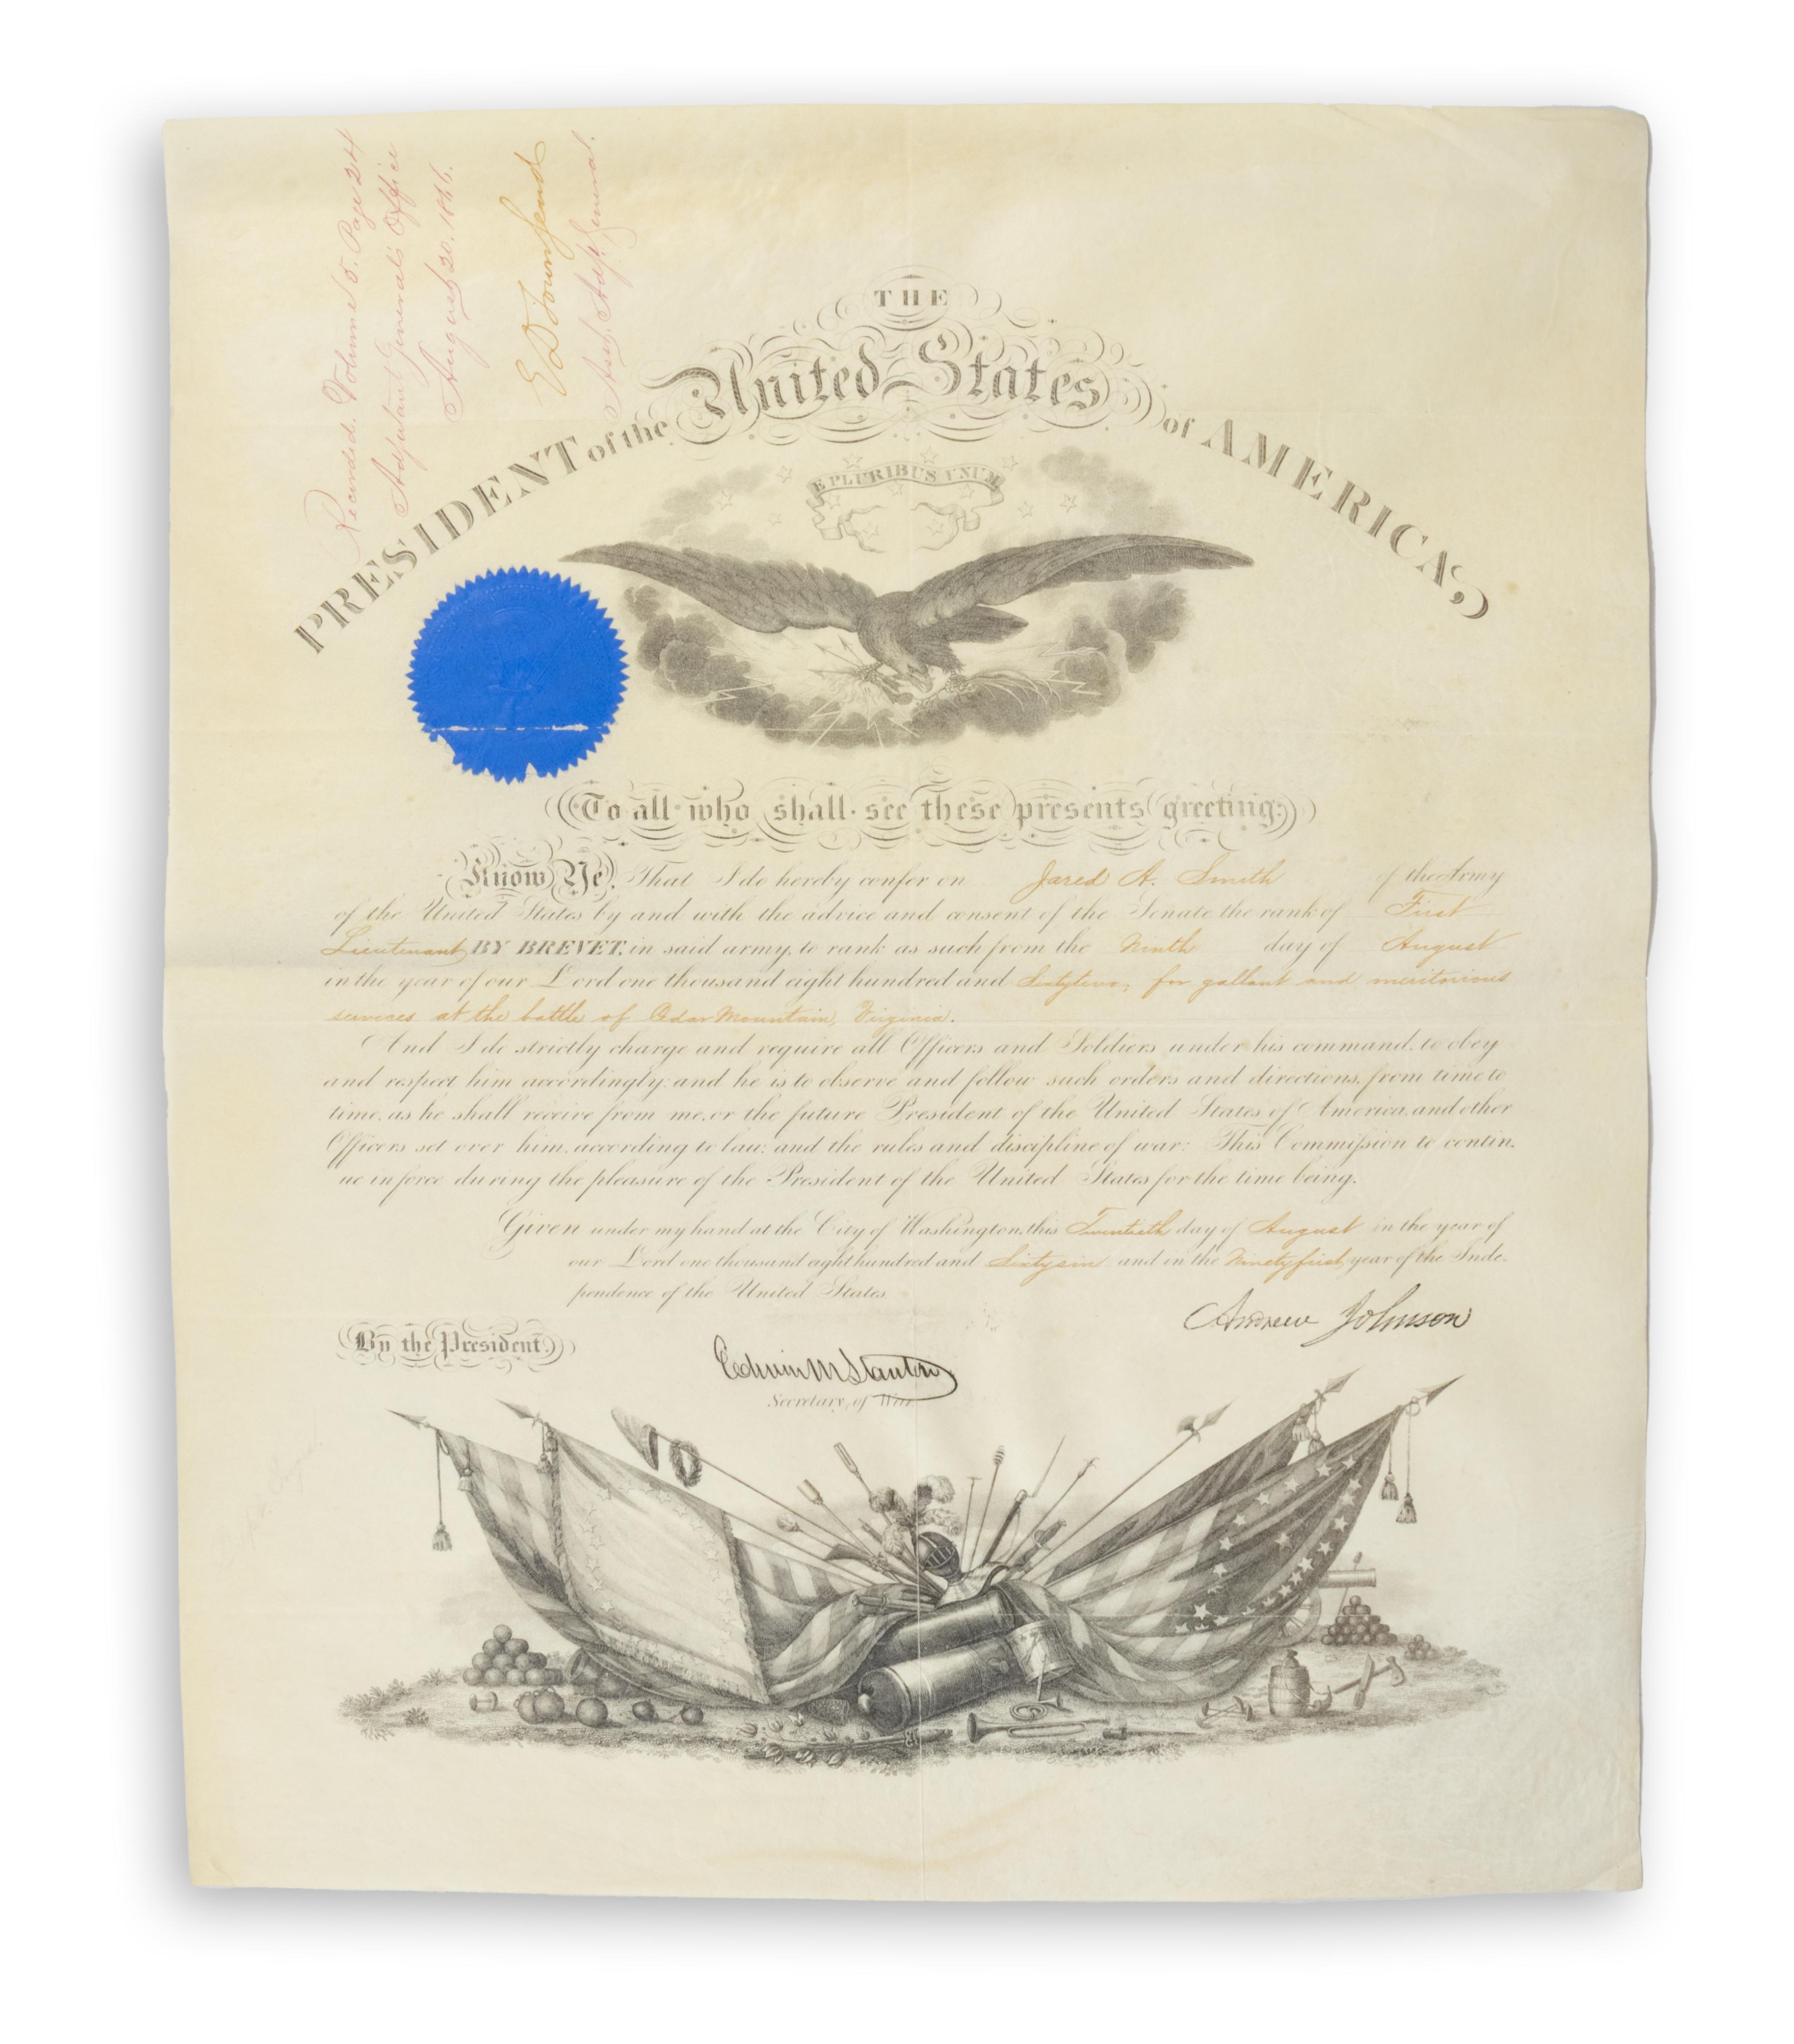 Recorded. Volume 5. Page 24
Adjutant General's Office
August 20. 1866.
E D Townsend
Asst. Adjt. General.
THE
PRESIDENT of the United States of AMERICA,
E PLURIBUS UNUM
To all who shall see these presents greeting:
Know Ye, That I do hereby confer on Jared A. Smith of the Army
of the United States by and with the advice and consent of the Senate the rank of First
Lieutenant BY BREVET, in said army, to rank as such from the Ninth day of August
in the year of our Lord one thousand eight hundred and Sixtytwo, for gallant and meritorious
services at the battle of Cedar Mountain, Virginia.
And I do strictly charge and require all Officers and Soldiers under his command, to obey
and respect him accordingly: and he is to observe and follow such orders and directions, from time to
time, as he shall receive from me, or the future President of the United States of America, and other
Officers set over him, according to law; and the rules and discipline of war: This Commission to contin-
ue in force during the pleasure of the President of the United States for the time being.
Given under my hand at the City of Washington, this Twentieth day of August in the year of
our Lord one thousand eight hundred and Sixtysix and in the Ninetyfirst year of the Inde-
pendence of the United States.
Andrew Johnson
By the President,
Edwin M Stanton
Secretary, of War.